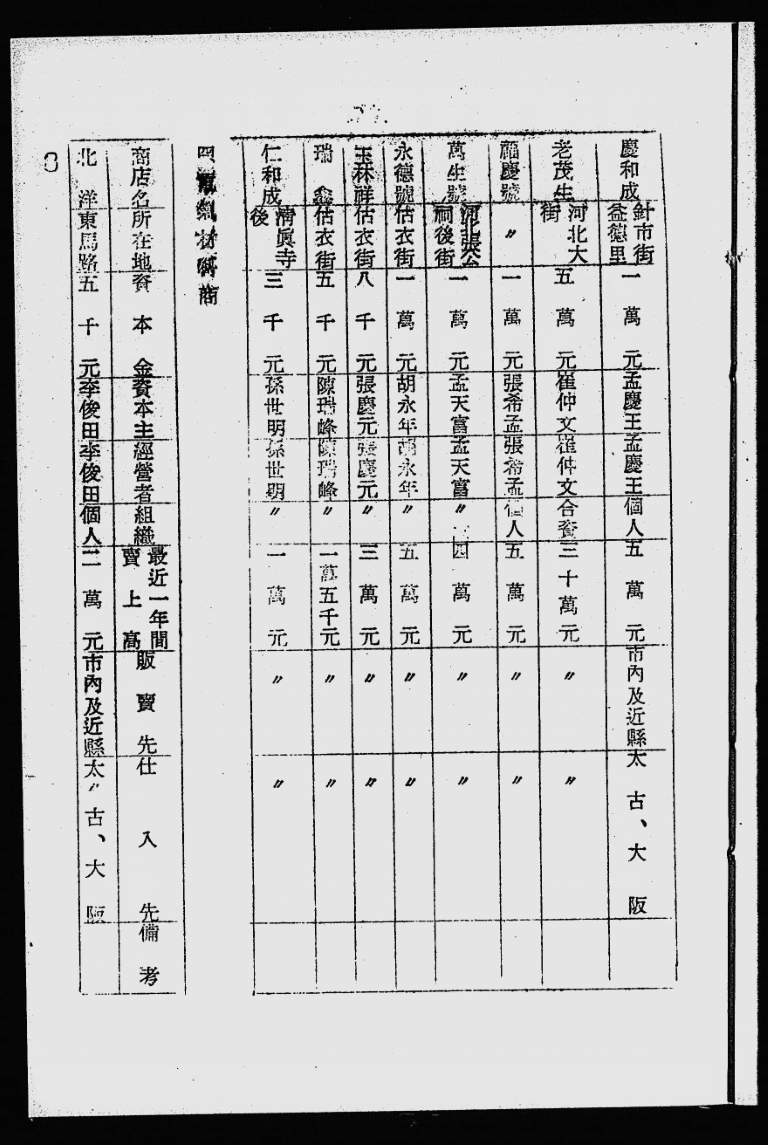 慶和成 針市街益德里 一萬元 孟慶王 孟慶王 個人 五萬元 市內及近縣 太古、大阪
老茂生 河北大街 五萬元 崔仲文 崔仲文 合資 三十萬元 〃 〃
福慶號 〃 一萬元 張希孟 張希孟 個人 五萬元 〃 〃
萬生號 河北張公祠後街 一萬元 孟天富 孟天富 〃 四萬元 〃 〃
永德號 估衣街 一萬元 胡永年 胡永年 〃 五萬元 〃 〃
玉林祥 估衣街 八千元 張慶元 張慶元 〃 三萬元 〃 〃
瑞鑫 估衣街 五千元 陳瑞峰 陳瑞峰 〃 一萬五千元 〃 〃
仁和成 清眞寺後 三千元 孫世明 孫世明 〃 一萬元 〃 〃
商
商店名 所在地 資本金 資本主 經營者 組織 最近一年間賣上高 販賣先 仕入先 備考
北洋 東馬路 五千元 李俊田 李俊田 個人 二萬元 市內及近縣 太古、大阪